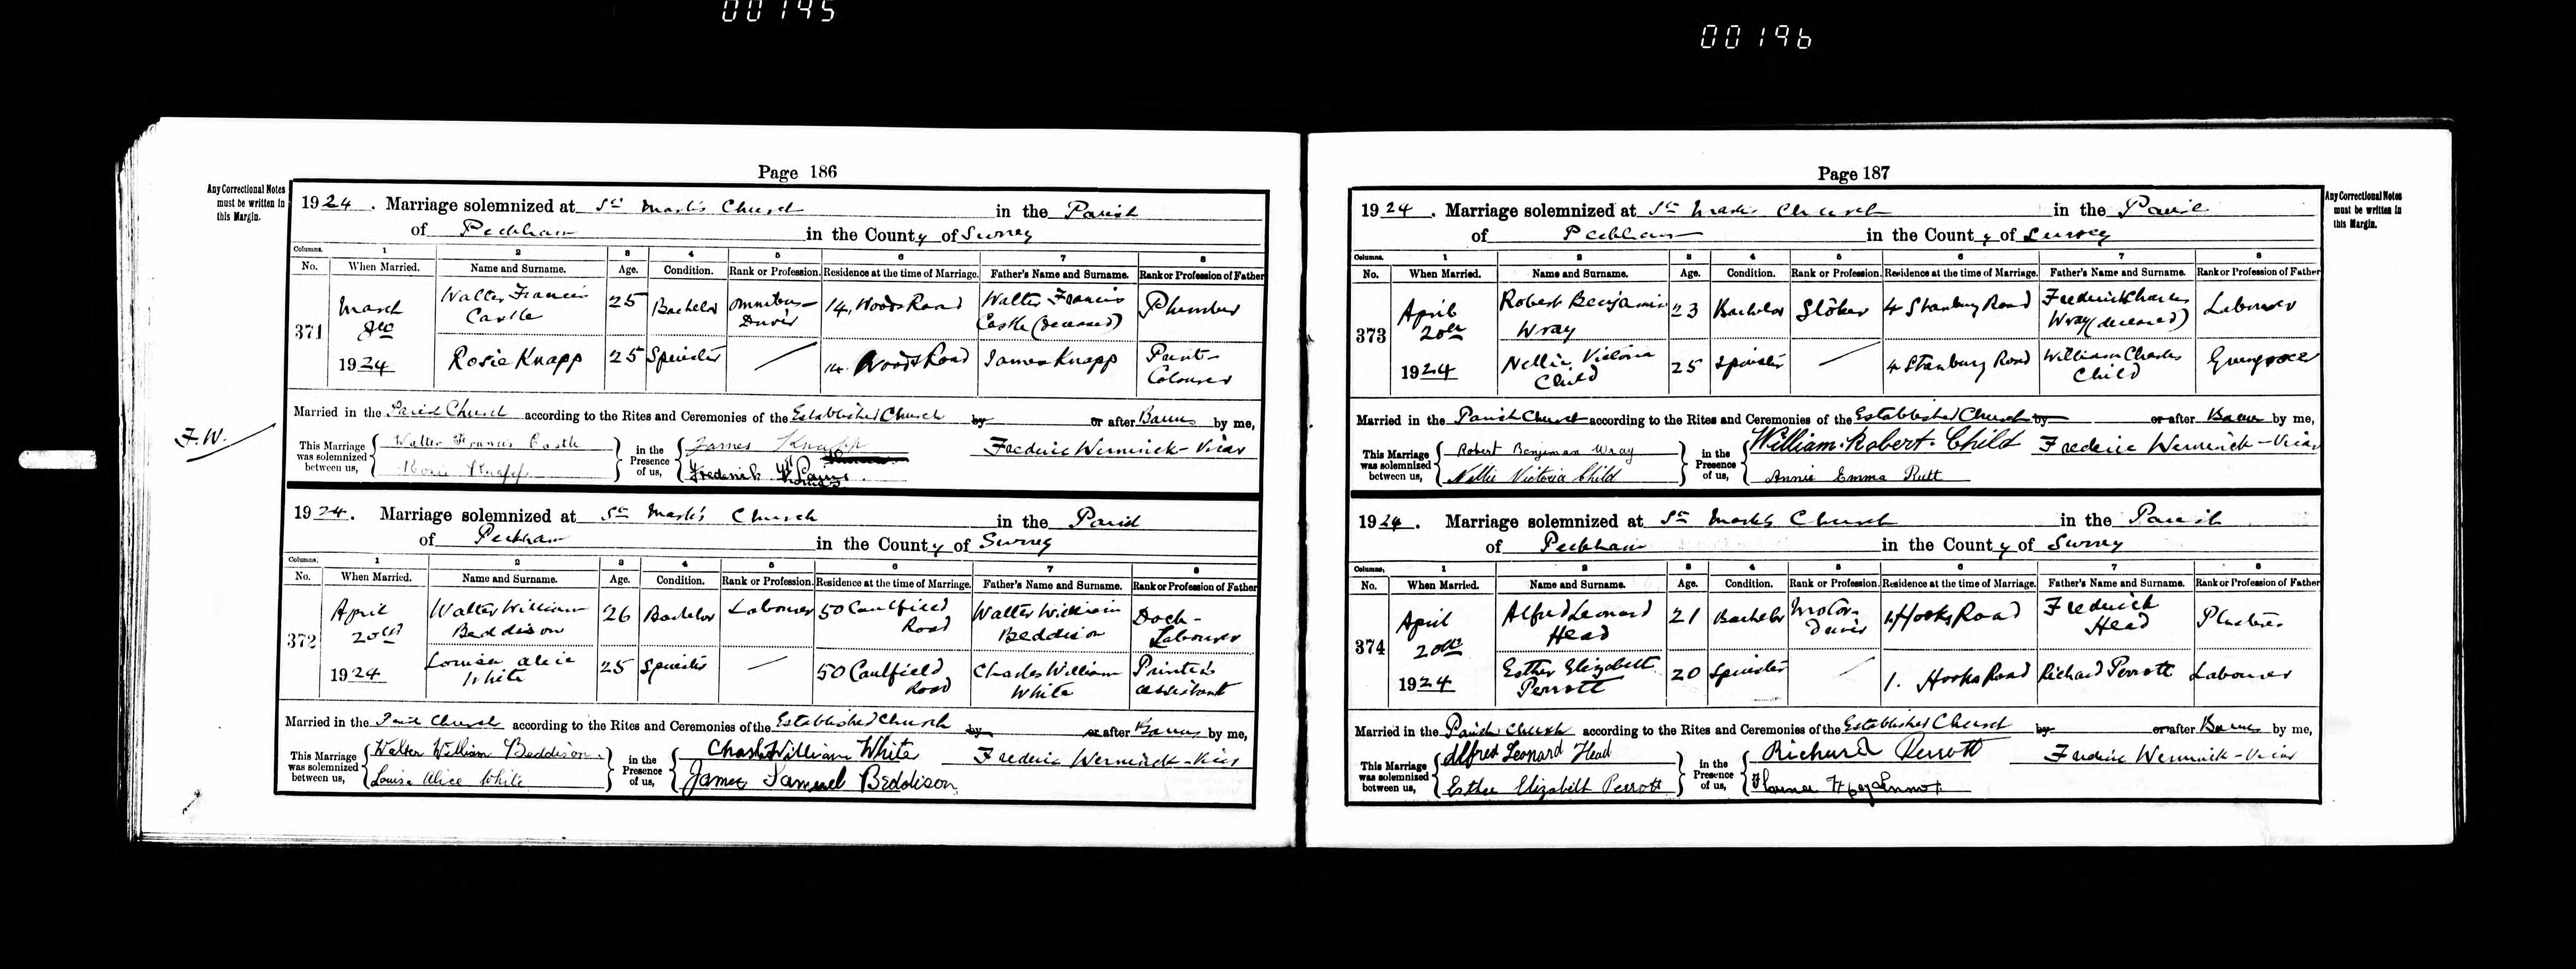 00195
00196
Page 186
Any Correctional Notes
must be written in
this Margin.
1924. Marriage solemnized at St Mark's Church in the Parish
of Peckham in the County of Surrey
Columns. 1 2 3 4 5 6 7 8
No. When Married. Name and Surname. Age. Condition. Rank or Profession. Residence at the time of Marriage. Father's Name and Surname. Rank or Profession of Father
371 March Walter Francis Castle 25 Bachelor Omnibus-Driver 14, Woods Road Walter Francis Castle (deceased) Plumber
1924 Rosie Knapp 25 Spinster 14. Woods Road James Knapp Paint-Colourer
Married in the Parish Church according to the Rites and Ceremonies of the Established Church by or after Banns by me,
This Marriage was solemnized between us, Walter Francis Castle in the Presence of us, James Knapp Frederic Werninck-Vicar
Rosie Knapp Frederick
F.W.
1924. Marriage solemnized at St Mark's Church in the Parish
of Peckham in the County of Surrey
Columns. 1 2 3 4 5 6 7 8
No. When Married. Name and Surname. Age. Condition. Rank or Profession. Residence at the time of Marriage. Father's Name and Surname. Rank or Profession of Father
372 April 20th Walter William Beddison 26 Bachelor Labourer 50 Caulfield Road Walter William Beddison Dock-Labourer
1924 Louisa Alice White 25 Spinster 50 Caulfield Road Charles William White Printer's assistant
Married in the Parish Church according to the Rites and Ceremonies of the Established Church by or after Banns by me,
This Marriage was solemnized between us, Walter William Beddison in the Presence of us, Chas William White Frederic Werninck-Vicar
Louisa Alice White James Samuel Beddison
Page 187
Any Correctional Notes
must be written in
this Margin.
1924. Marriage solemnized at St Mark's Church in the Parish
of Peckham in the County of Surrey
Columns. 1 2 3 4 5 6 7 8
No. When Married. Name and Surname. Age. Condition. Rank or Profession. Residence at the time of Marriage. Father's Name and Surname. Rank or Profession of Father
373 April 20th Robert Benjamin Wray 23 Bachelor Stoker 4 Stanbury Road Frederick Charles Wray (deceased) Labourer
1924 Nellie Victoria Child 25 Spinster 4 Stanbury Road William Charles Child Greengrocer
Married in the Parish Church according to the Rites and Ceremonies of the Established Church by or after Banns by me,
This Marriage was solemnized between us, Robert Benjiman Wray in the Presence of us, William Robert Child Frederic Werninck-Vicar
Nellie Victoria Child Annie Emma Rutt
1924. Marriage solemnized at St Mark's Church in the Parish
of Peckham in the County of Surrey
Columns, 1 2 3 4 5 6 7 8
No. When Married. Name and Surname. Age. Condition. Rank or Profession. Residence at the time of Marriage. Father's Name and Surname. Rank or Profession of Father
374 April 20th Alfred Leonard Head 21 Bachelor Motor-Driver 1 Hooks Road Frederick Head Plasterer
1924 Esther Elizabeth Perrott 20 Spinster 1. Hooks Road Richard Perrott Labourer
Married in the Parish Church according to the Rites and Ceremonies of the Established Church by or after Banns by me,
This Marriage was solemnized between us, Alfred Leonard Head in the Presence of us, Richard Perrott Frederic Werninck-Vicar
Esther Elizabeth Perrott Florence